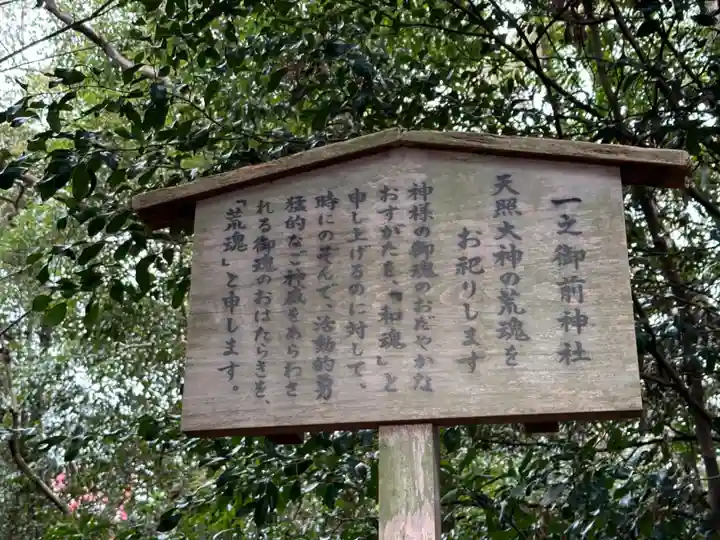 一之御前神社
天照大神の荒魂を
お祀りします
神様の御魂のおだやかな
おすがたを、「和魂」と
申し上げるのに対して、
時にのぞんで、活動的勇
猛的なご神威をあらわさ
れる御魂のおはたらきを、
「荒魂」と申します。